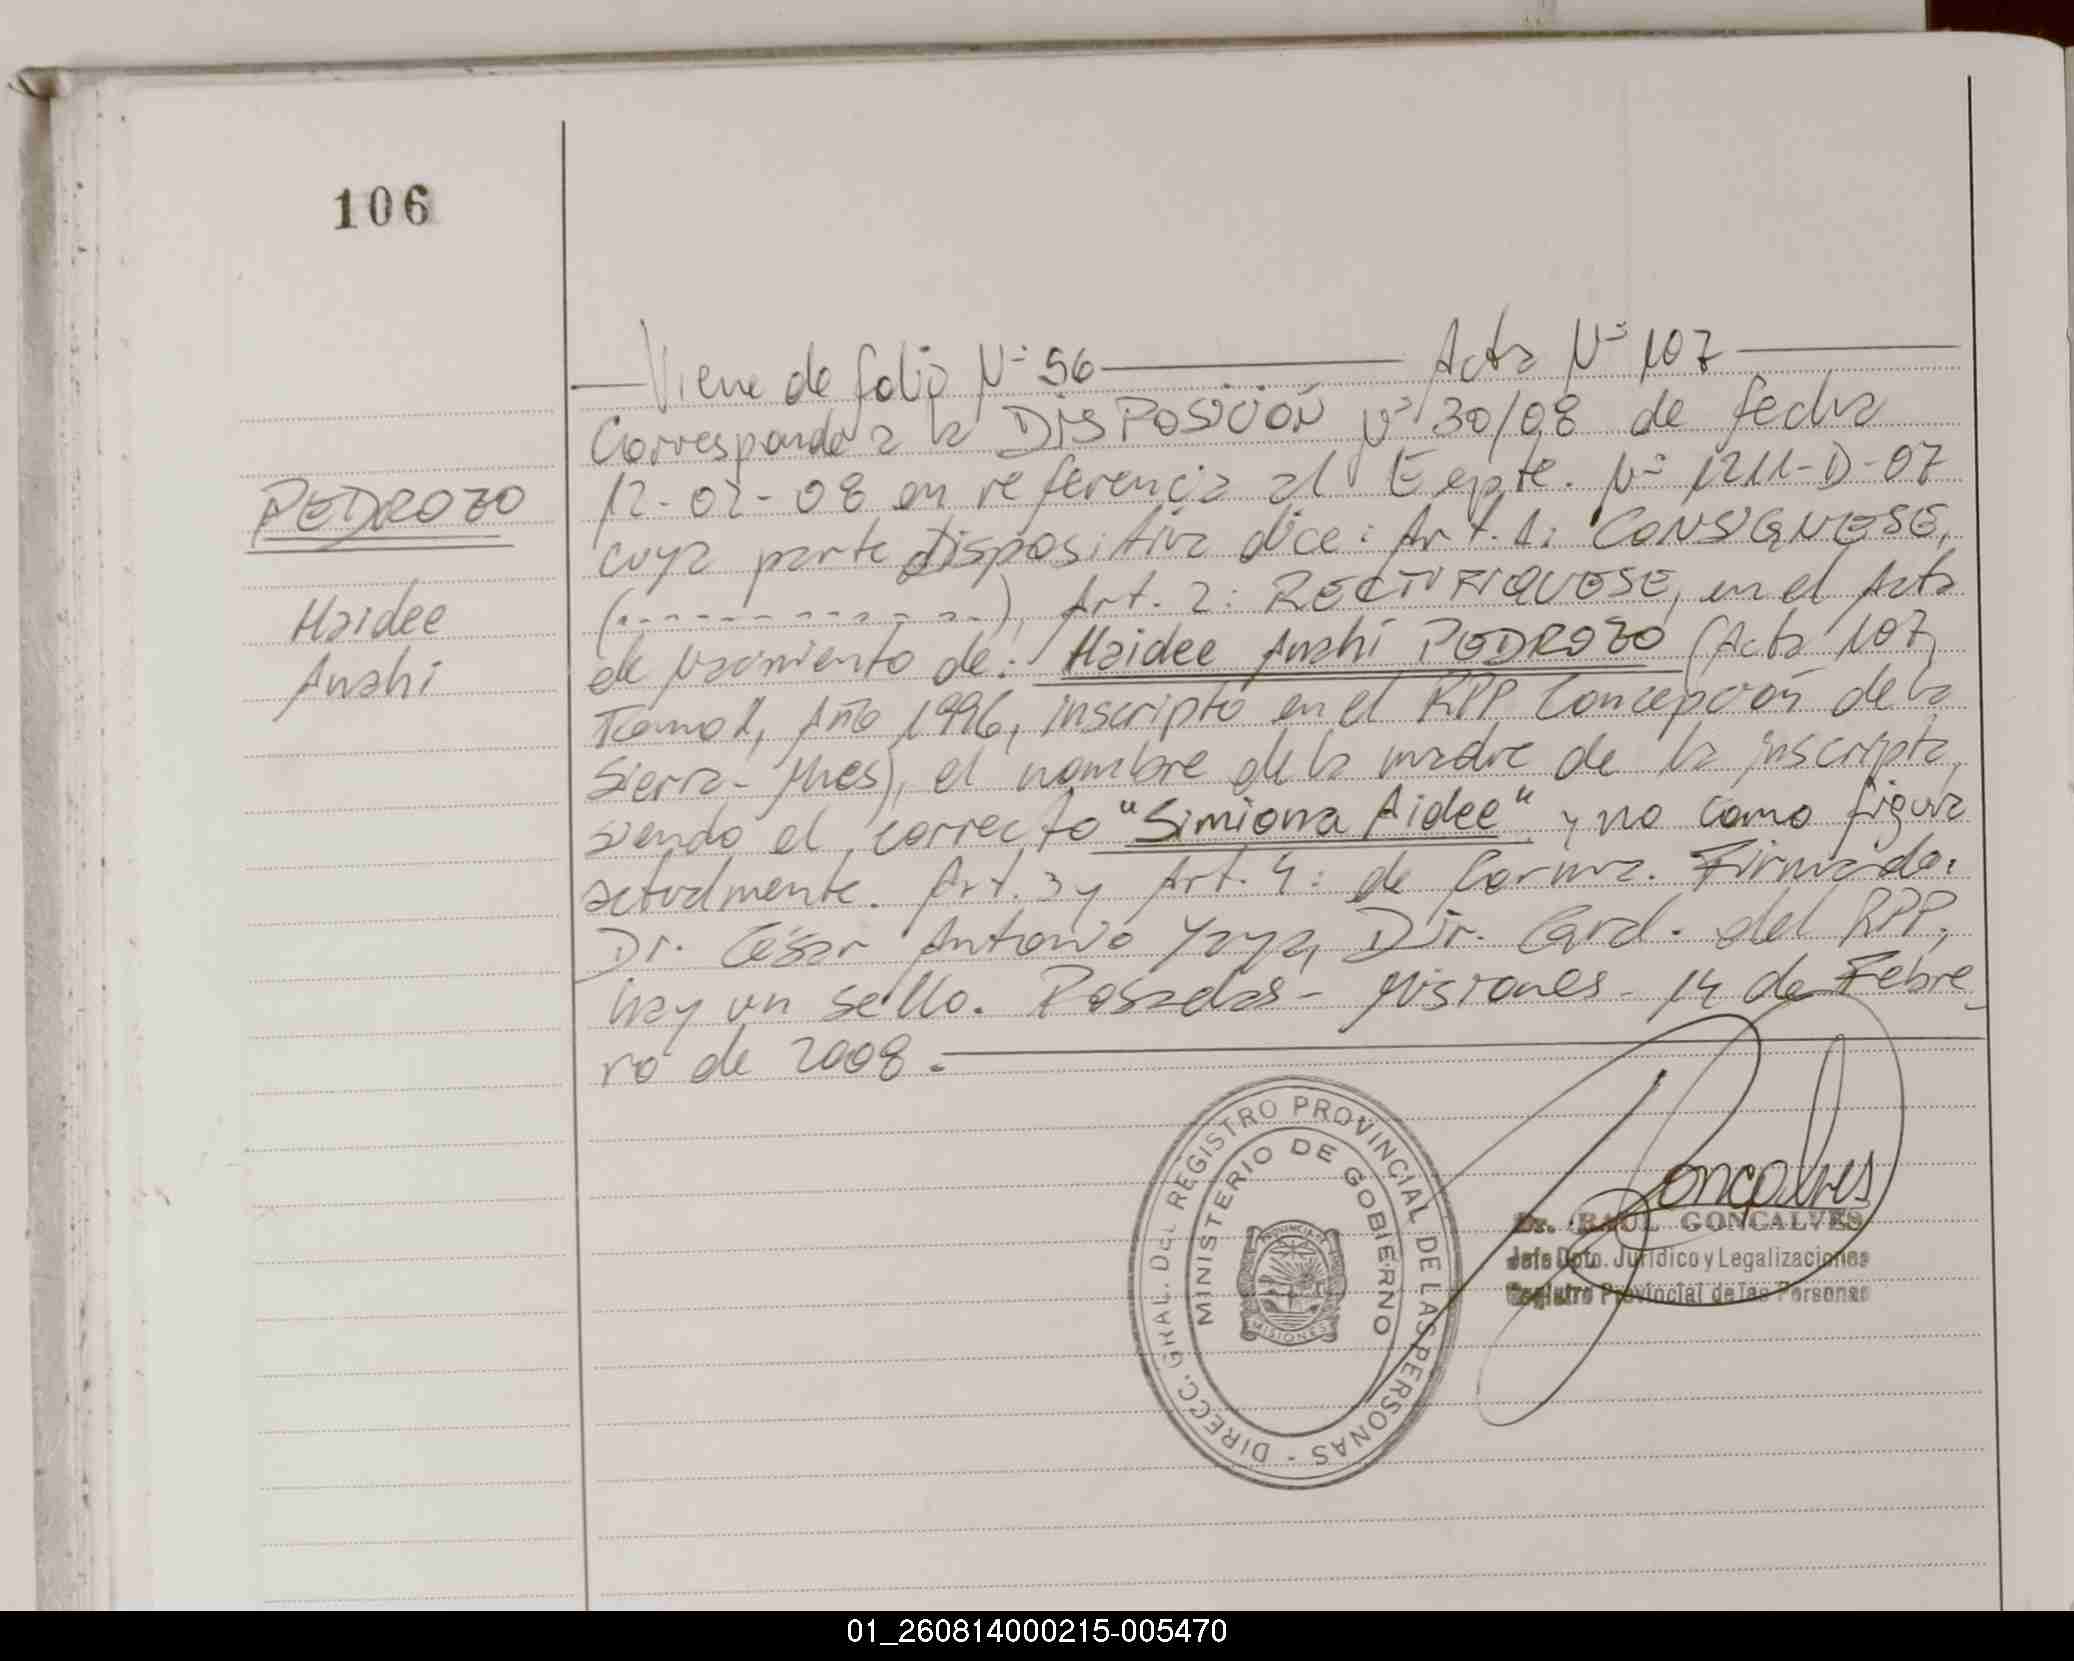 106
Viene de folio Nº 56 Acta Nº 107
Corresponde a la DISPOSICIÓN Nº 30/08 de fecha
PEDROZO
12-02-08 en referencia al Expte. Nº 1211-D-07
cuya parte dispositiva dice: Art. 1: CONSIGNESE,
Haidee
(- - - - - - - - - - -), Art. 2: RECTIFIQUESE, en el Acta
Anahi
de nacimiento de: Haidee Anahí PEDROZO (Acta 107,
Tomo I, Año 1996, inscripto en el RPP Concepción de la
Sierra - Mnes), el nombre de la madre de la inscripta,
siendo el correcto "Simiona Aidee" y no como figura
actualmente. Art. 3 y Art. 4: de forma. Firmado:
Dr. César Antonio Yaya, Dir. Gral. del RPP,
hay un sello. Posadas - Misiones - 14 de Febre
ro de 2008.
DIRECC. GRAL. DEL REGISTRO PROVINCIAL DE LAS PERSONAS -
MINISTERIO DE GOBIERNO
PROVINCIA DE
MISIONES
Goncalves
Dr. RAUL GONCALVES
Jefe Dpto. Jurídico y Legalizaciones
Registro Provincial de las Personas
01_260814000215-005470